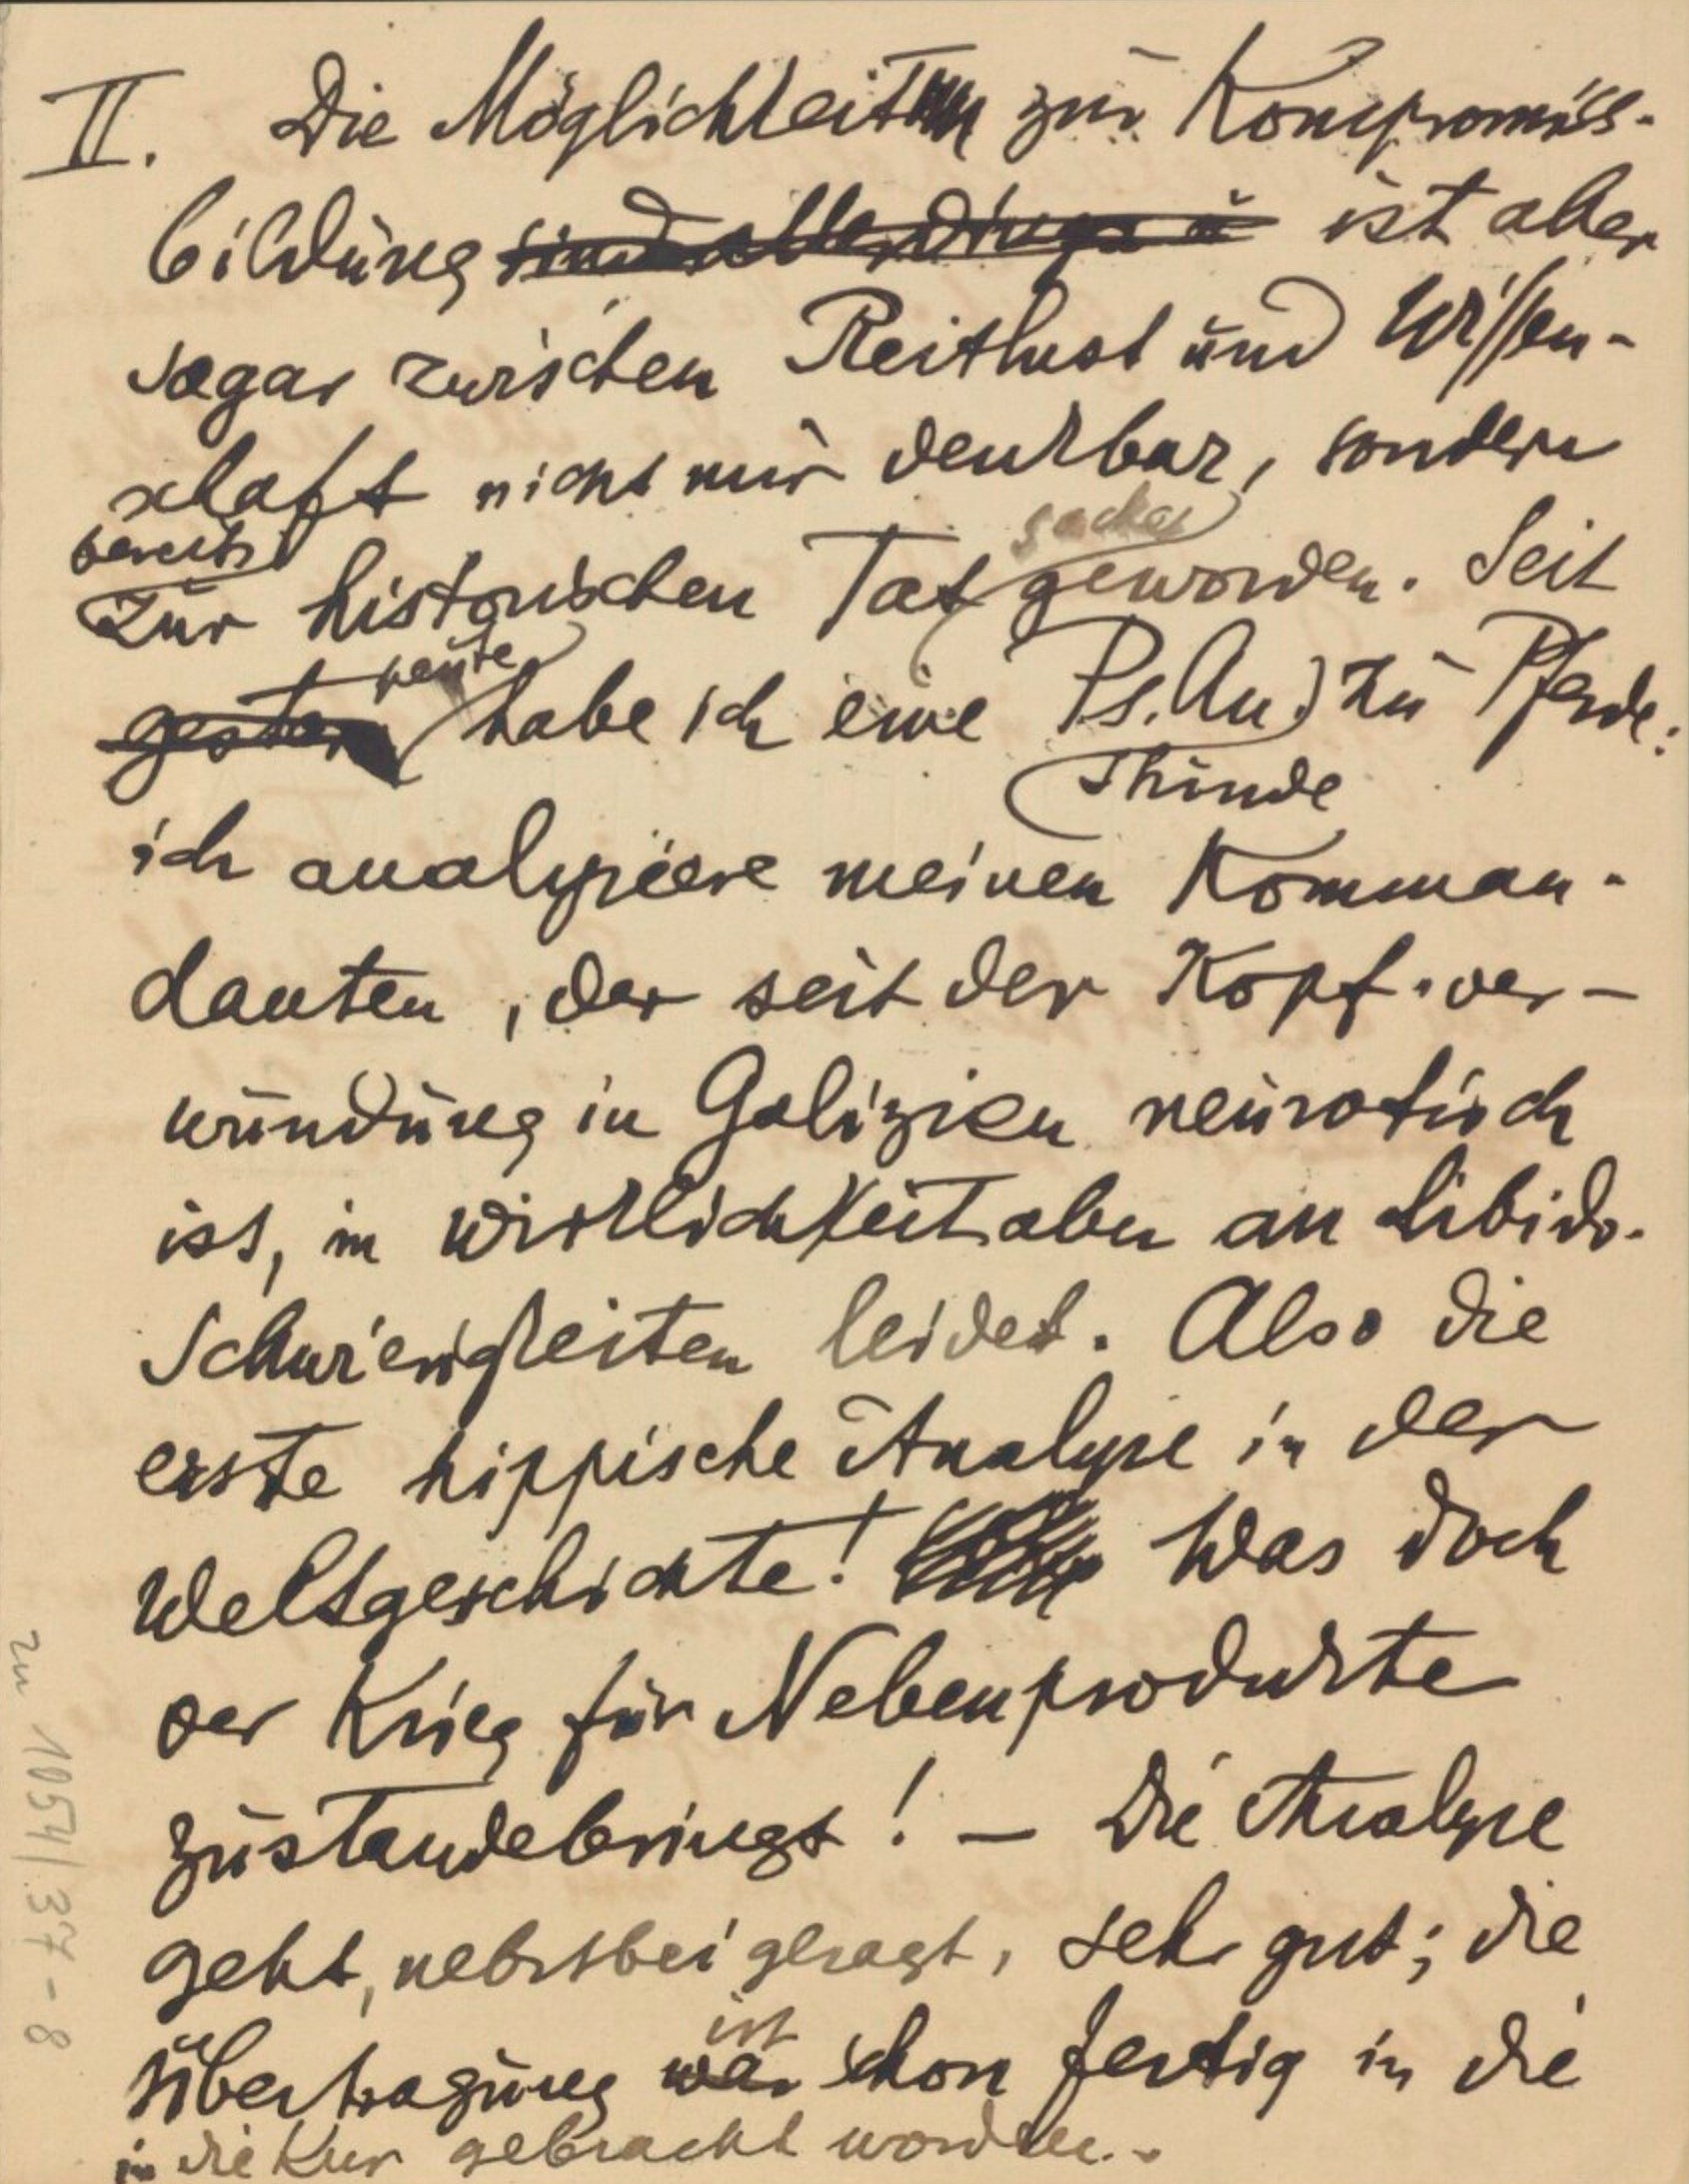 II. Die Möglichkeit zur Kompromiss-
bildung sind allerdings ist aber
sogar zwischen Reitlust und Wissen-
schaft nicht nur denkbar, sondern
bereits sache
zur historischen Tat geworden. Seit
heute
gestern habe ich eine Ps. An. zu Pferde:
Stunde
ich analysiere meinen Komman-
danten, der seit der Kopf-ver-
wundung in Galizien neurotisch
ist, in Wirklichkeit aber an Libido-
Schwierigkeiten leidet. Also die
erste hippische Analyse in der
Weltgeschichte! Was doch
der Krieg für Nebenprodukte
zustandebringt! – Die Analyse
geht, nebstbei gesagt, sehr gut; die
ist
Übertragung war schon fertig in die
in die Kur gebracht worden. –
zu 1054/37-8